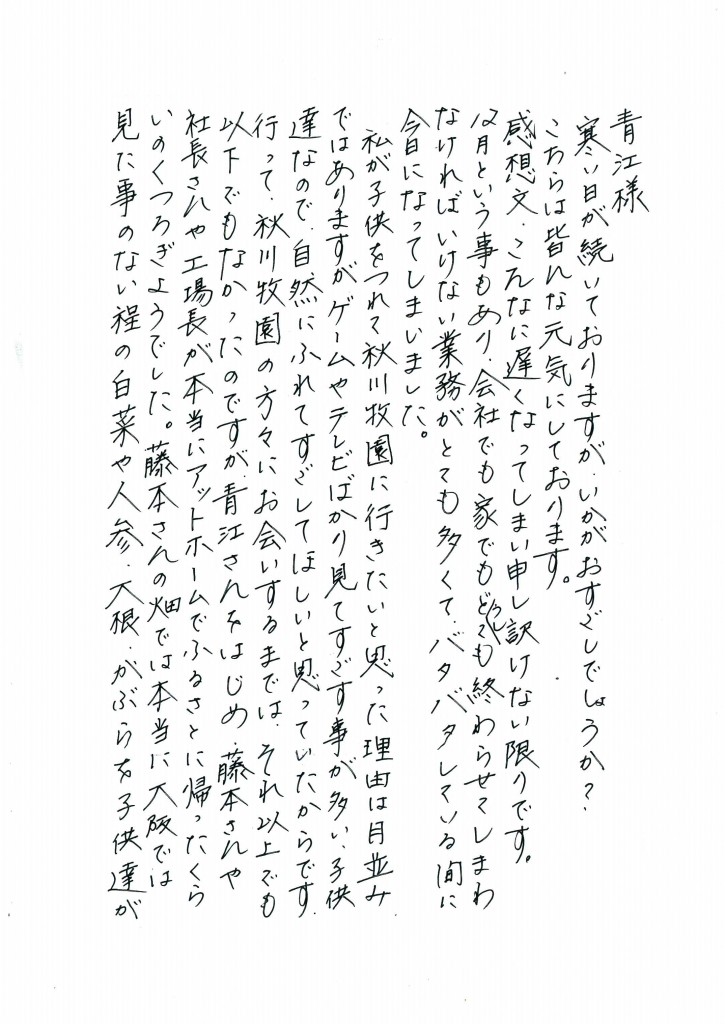 青江様
寒い日が続いておりますが、いかがおすごしでしょうか？
こちらは皆んな元気にしております。
感想文、こんなに遅くなってしまい申し訳けない限りです。
12月という事もあり、会社でも家でもどうしても終わらせてしまわ
なければいけない業務がとても多くて、バタバタしている間に
今日になってしまいました。
私が子供をつれて秋川牧園に行きたいと思った理由は月並み
ではありますがゲームやテレビばかり見てすごす事が多い、子供
達なので、自然にふれてすごしてほしいと思っていたからです。
行って、秋川牧園の方々にお会いするまでは、それ以上でも
以下でもなかったのですが、青江さんをはじめ、藤本さんや
社長さんや工場長が本当にアットホームでふるさとに帰ったくら
いのくつろぎようでした。藤本さんの畑では本当に大阪では
見た事のない程の白菜や人参、大根、かぶらを子供達が